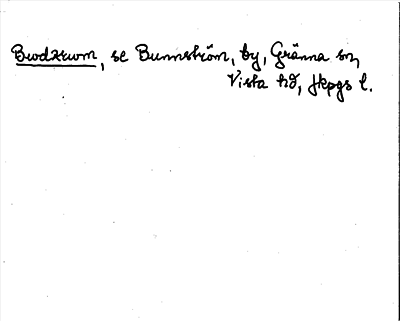 Bwdzrwm, se Bunnström, by, Gränna sn,
Vista hd, Jkpgs l.